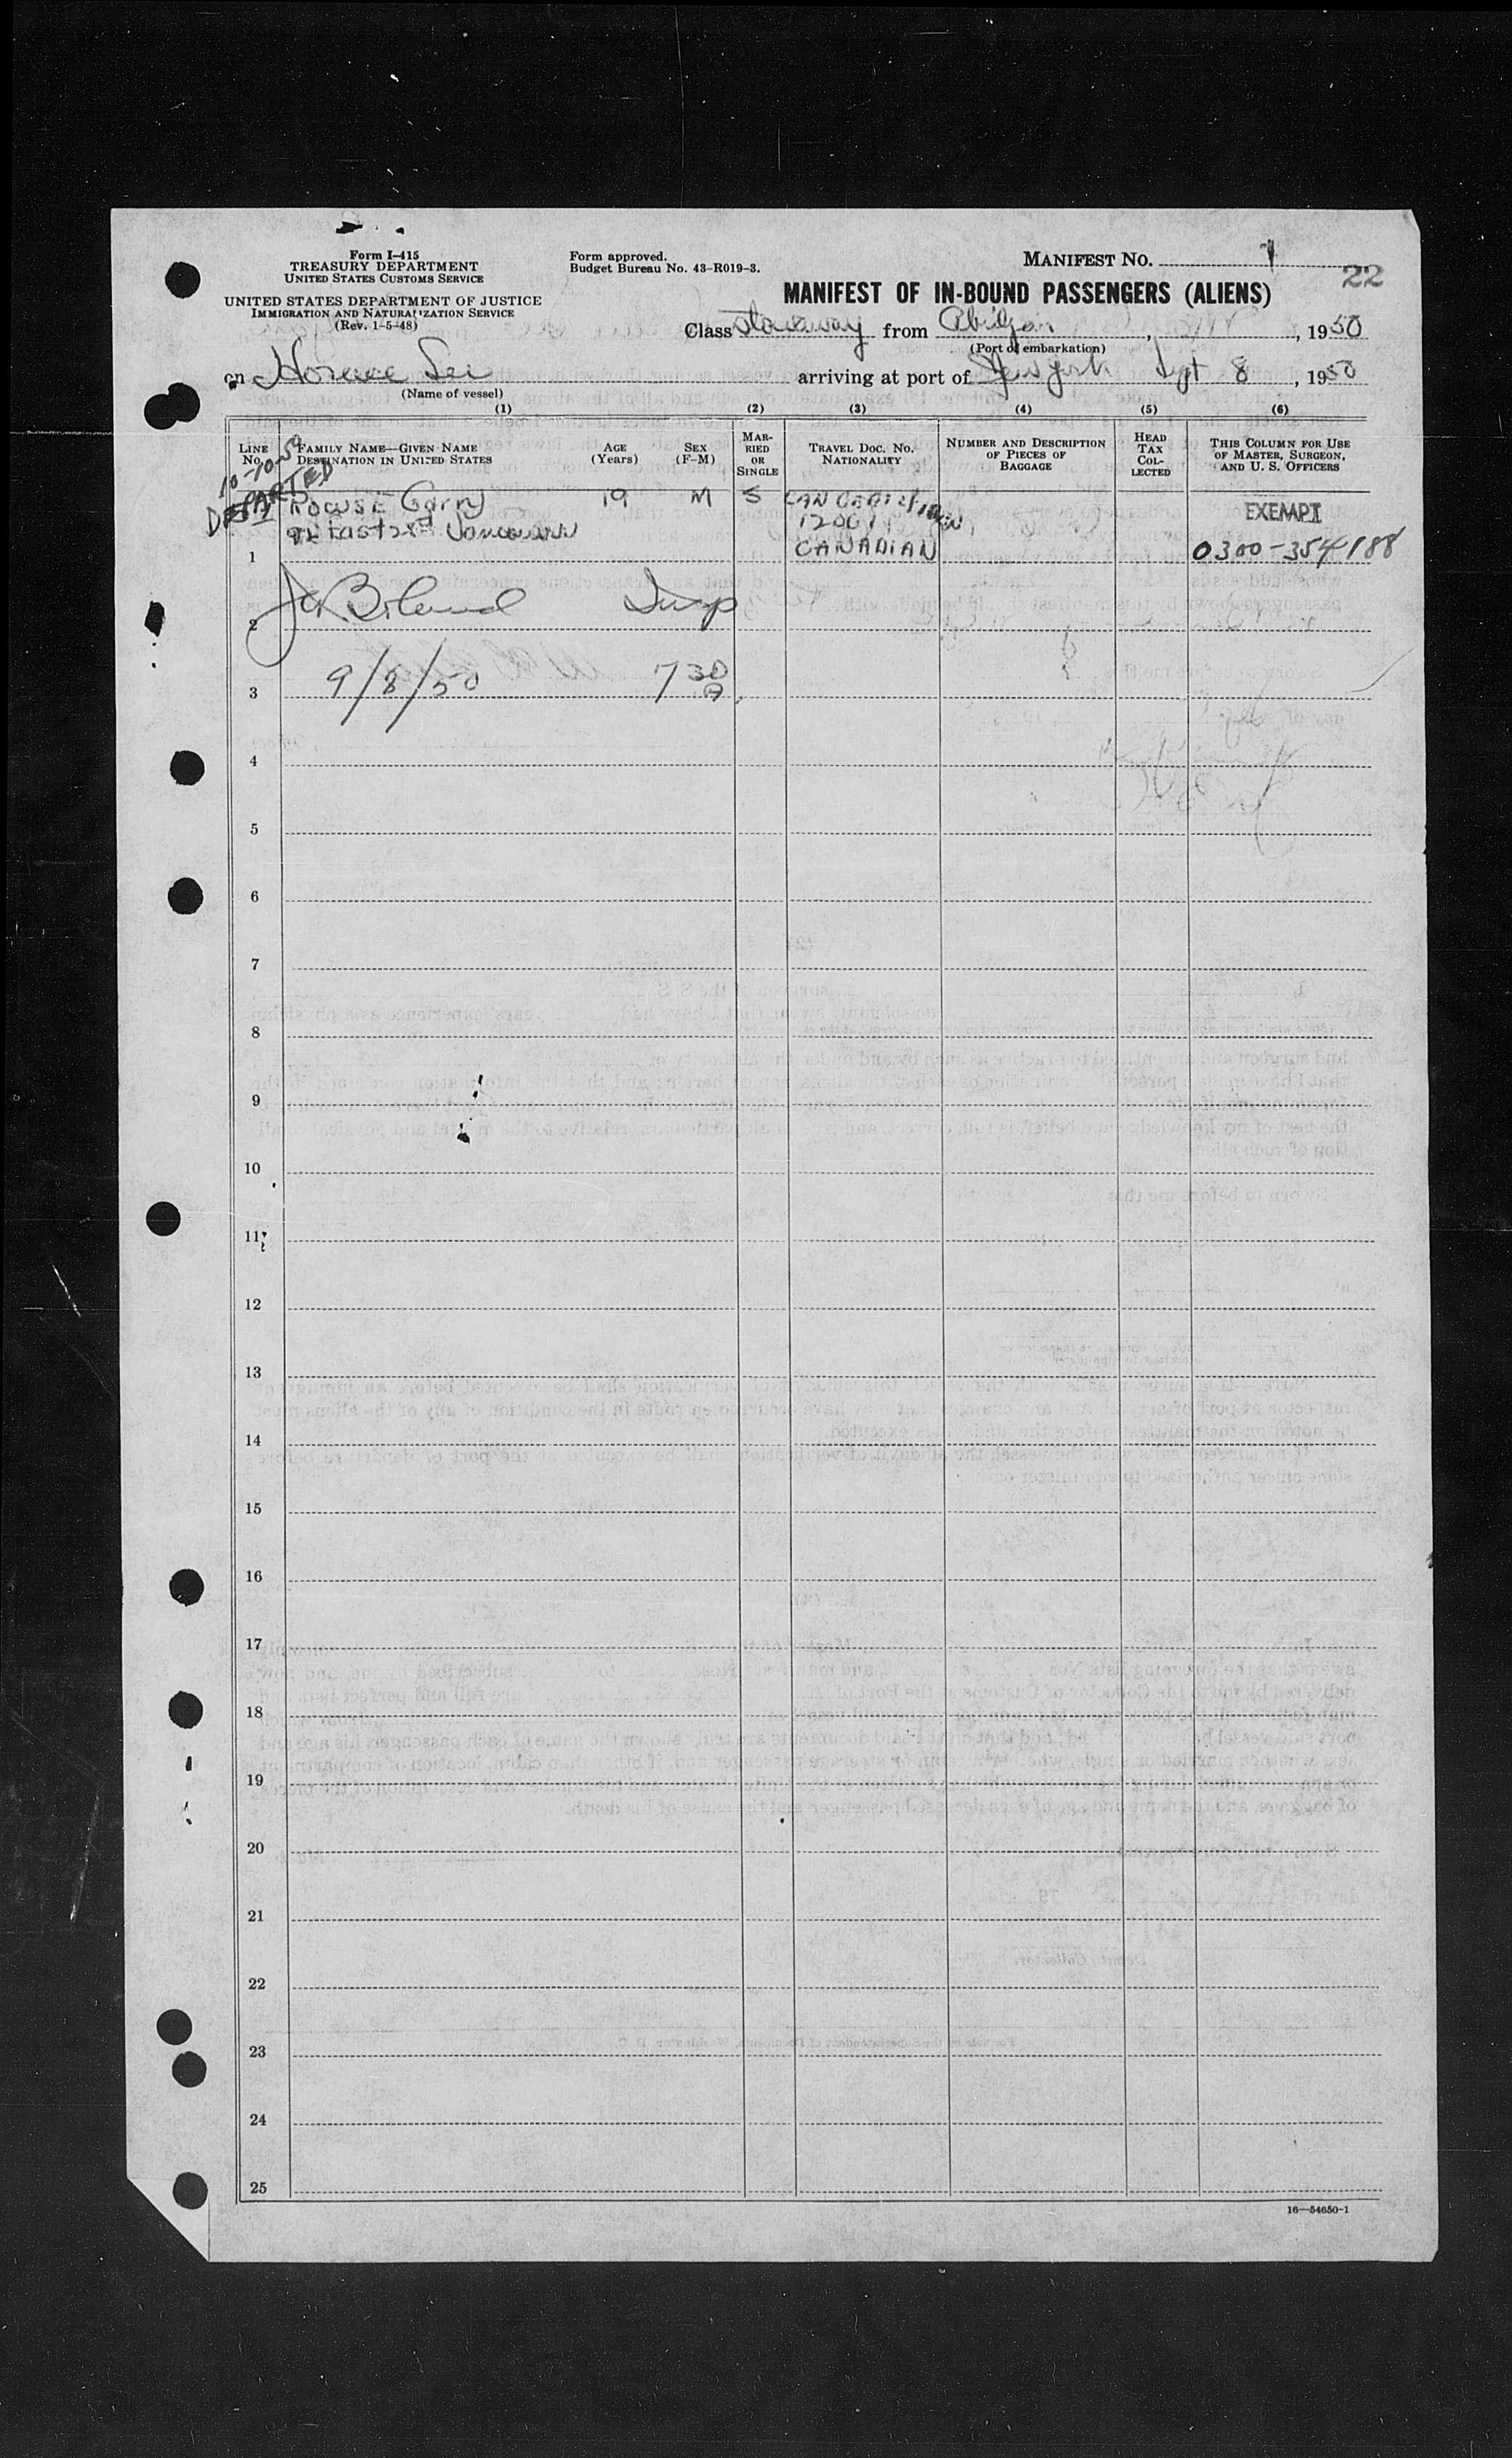 Form I-415
TREASURY DEPARTMENT
UNITED STATES CUSTOMS SERVICE
UNITED STATES DEPARTMENT OF JUSTICE
IMMIGRATION AND NATURALIZATION SERVICE
(Rev. 1-5-48)
Form approved.
Budget Bureau No. 43-R019-3.
MANIFEST NO. 1
22
MANIFEST OF IN-BOUND PASSENGERS (ALIENS)
Class Stowaway from Abidjan, 1950
(Port of embarkation)
on Horace arriving at port of New York Sept 8, 1950
(Name of vessel)
(1) (2) (3) (4) (5) (6)
LINE No. FAMILY NAME—GIVEN NAME DESTINATION IN UNITED STATES AGE (Years) SEX (F-M) MARRIED OR SINGLE TRAVEL DOC. NO. NATIONALITY NUMBER AND DESCRIPTION OF PIECES OF BAGGAGE HEAD TAX COLLECTED THIS COLUMN FOR USE OF MASTER, SURGEON, AND U. S. OFFICERS
10-10-50
DEPARTED
Rowse Garry 19 M S CAN CERT EXEMPT
East Vancouver
1 CANADIAN 0300-354188
2 Insp
3 9/8/50 7 30 A
4
5
6
7
8
9
10
11
12
13
14
15
16
17
18
19
20
21
22
23
24
25
16—54650-1